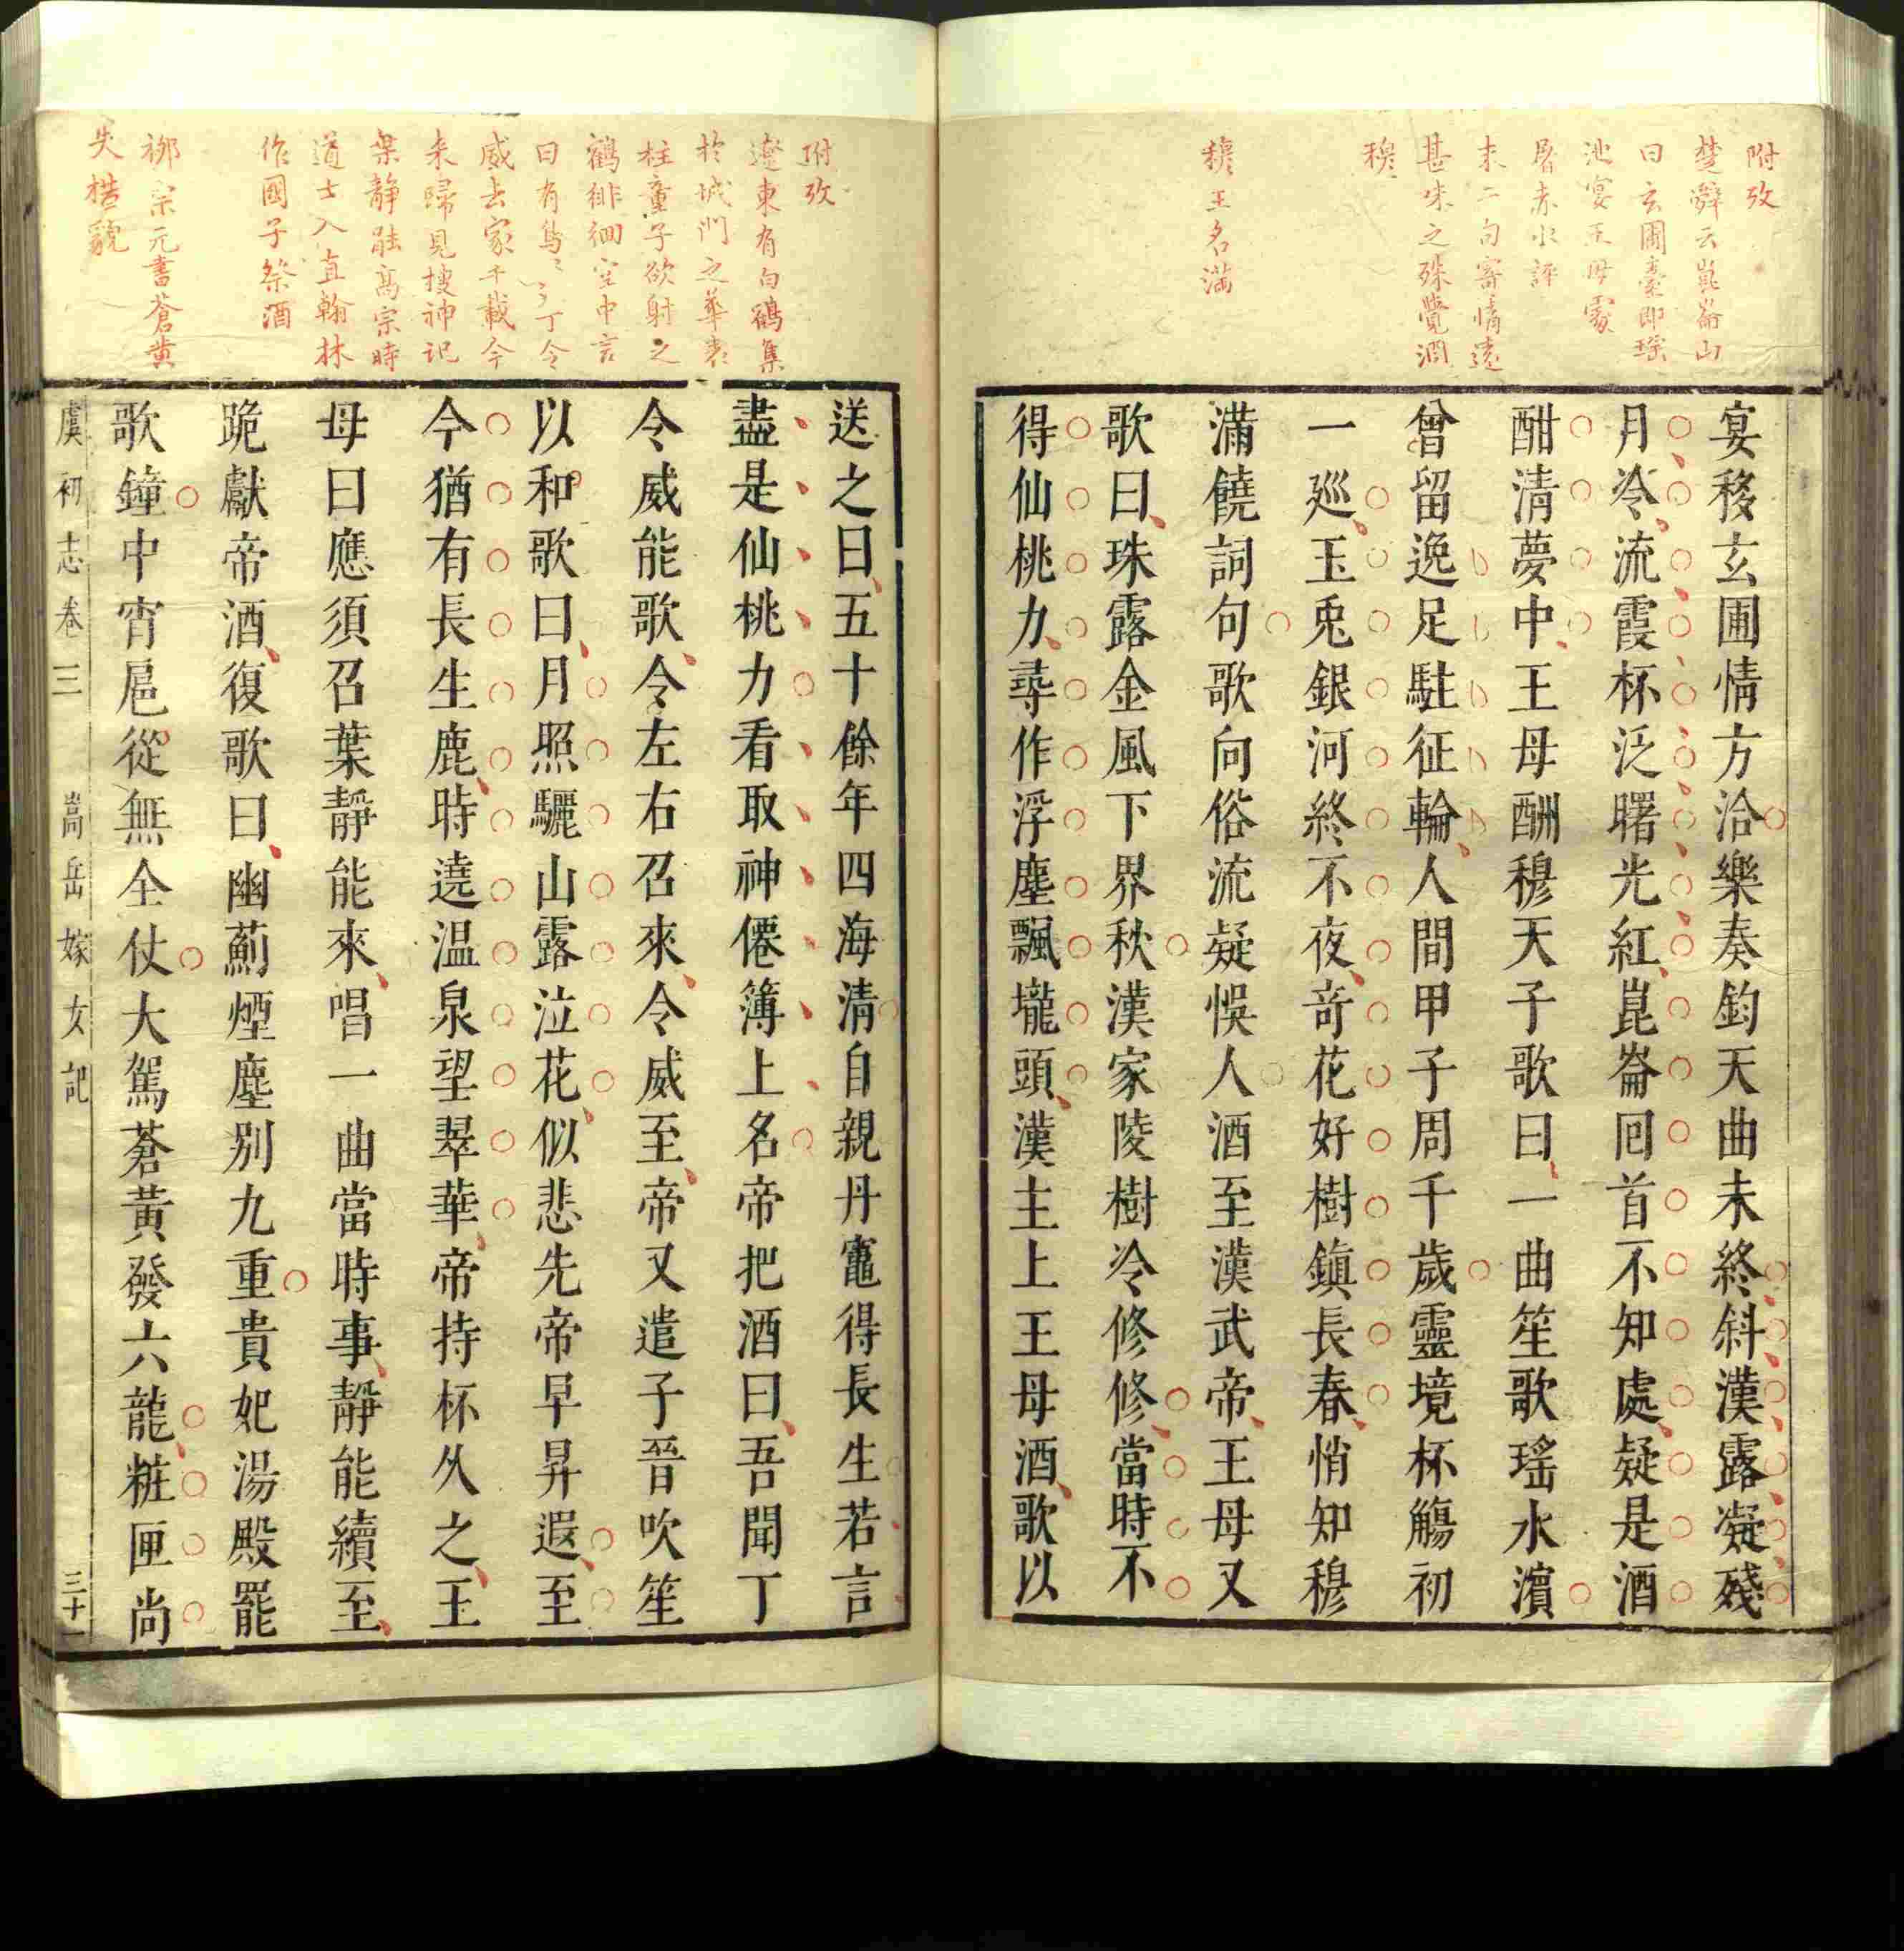 附攷
楚辭云崑崙山
曰玄圃臺即瑤
池宴王母處
屠赤水評
末二句寄情遠
甚味之殊覺淵
穆
穆王名滿
宴移玄圃情方洽樂奏鈞天曲未終斜漢露凝殘
月冷流霞杯泛曙光紅崑崙囘首不知處疑是酒
酣清夢中王母酬穆天子歌曰一曲笙歌瑤水濱
曾留逸足駐征輪人間甲子周千歲靈境杯觴初
一廵玉兎銀河終不夜竒花好樹鎭長春悄知穆
滿饒詞句歌向俗流疑悞人酒至漢武帝王母又
歌曰珠露金風下界秋漢家陵樹冷修修當時不
得仙桃力尋作浮塵飄壠頭漢主上王母酒歌以
附攷
遼東有白鶴集
於城門之華表
柱童子欲射之
鶴徘徊空中言
曰有鳥丁令
威去家千載今
來歸見搜神記
葉静能高宗時
道士入直翰林
作國子祭酒
柳宗元書蒼黄
失措貌
送之曰五十餘年四海清自親丹竈得長生若言
盡是仙桃力看取神僊簿上名帝把酒曰吾聞丁
令威能歌令左右召來令威至帝又遣子晉吹笙
以和歌曰月照驪山露泣花似悲先帝早昇遐至
今猶有長生鹿時遶温泉望翠華帝持杯久之王
母曰應須召葉靜能來唱一曲當時事靜能續至
跪獻帝酒復歌曰幽薊煙塵别九重貴妃湯殿罷
歌鐘中宵扈從無全仗大駕蒼黃發六龍粧匣尚
虞初志卷三 嵩岳嫁女記 三十一